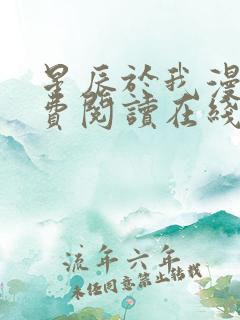 星辰於我漫
費閱讀在綫
流年六年
未经同意禁止转载